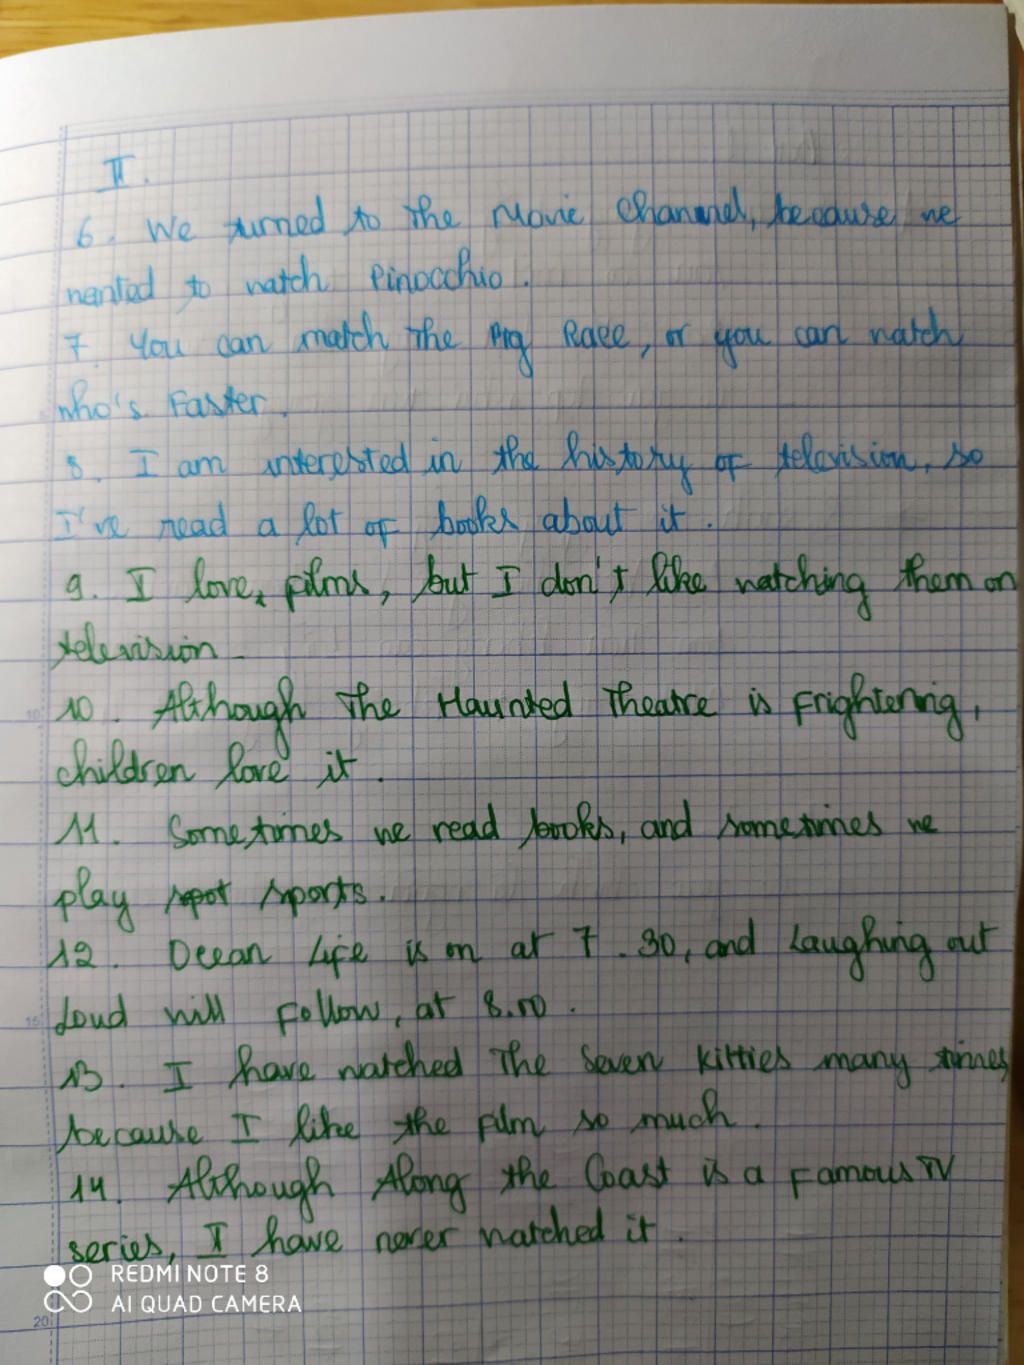 II.
6. We turned to the Movie Channel, because we
wanted to watch Pinocchio.
7 You can match the Pig Race, or you can watch
who's Faster.
8. I am interested in the history of television, so
I've read a lot of books about it.
9. I love films, but I don't like watching them on
television
10. Although The Haunted Theatre is Frightening,
children love it.
11. Sometimes we read books, and sometimes we
play spot sports.
12. Ocean Life is on at 7.30, and Laughing out
Loud will Follow, at 8.00.
13. I have watched The Seven Kitties many times
because I like the film so much.
14. Although Along the Coast is a Famous TV
series, I have never watched it.
REDMI NOTE 8
AI QUAD CAMERA
10
15
20